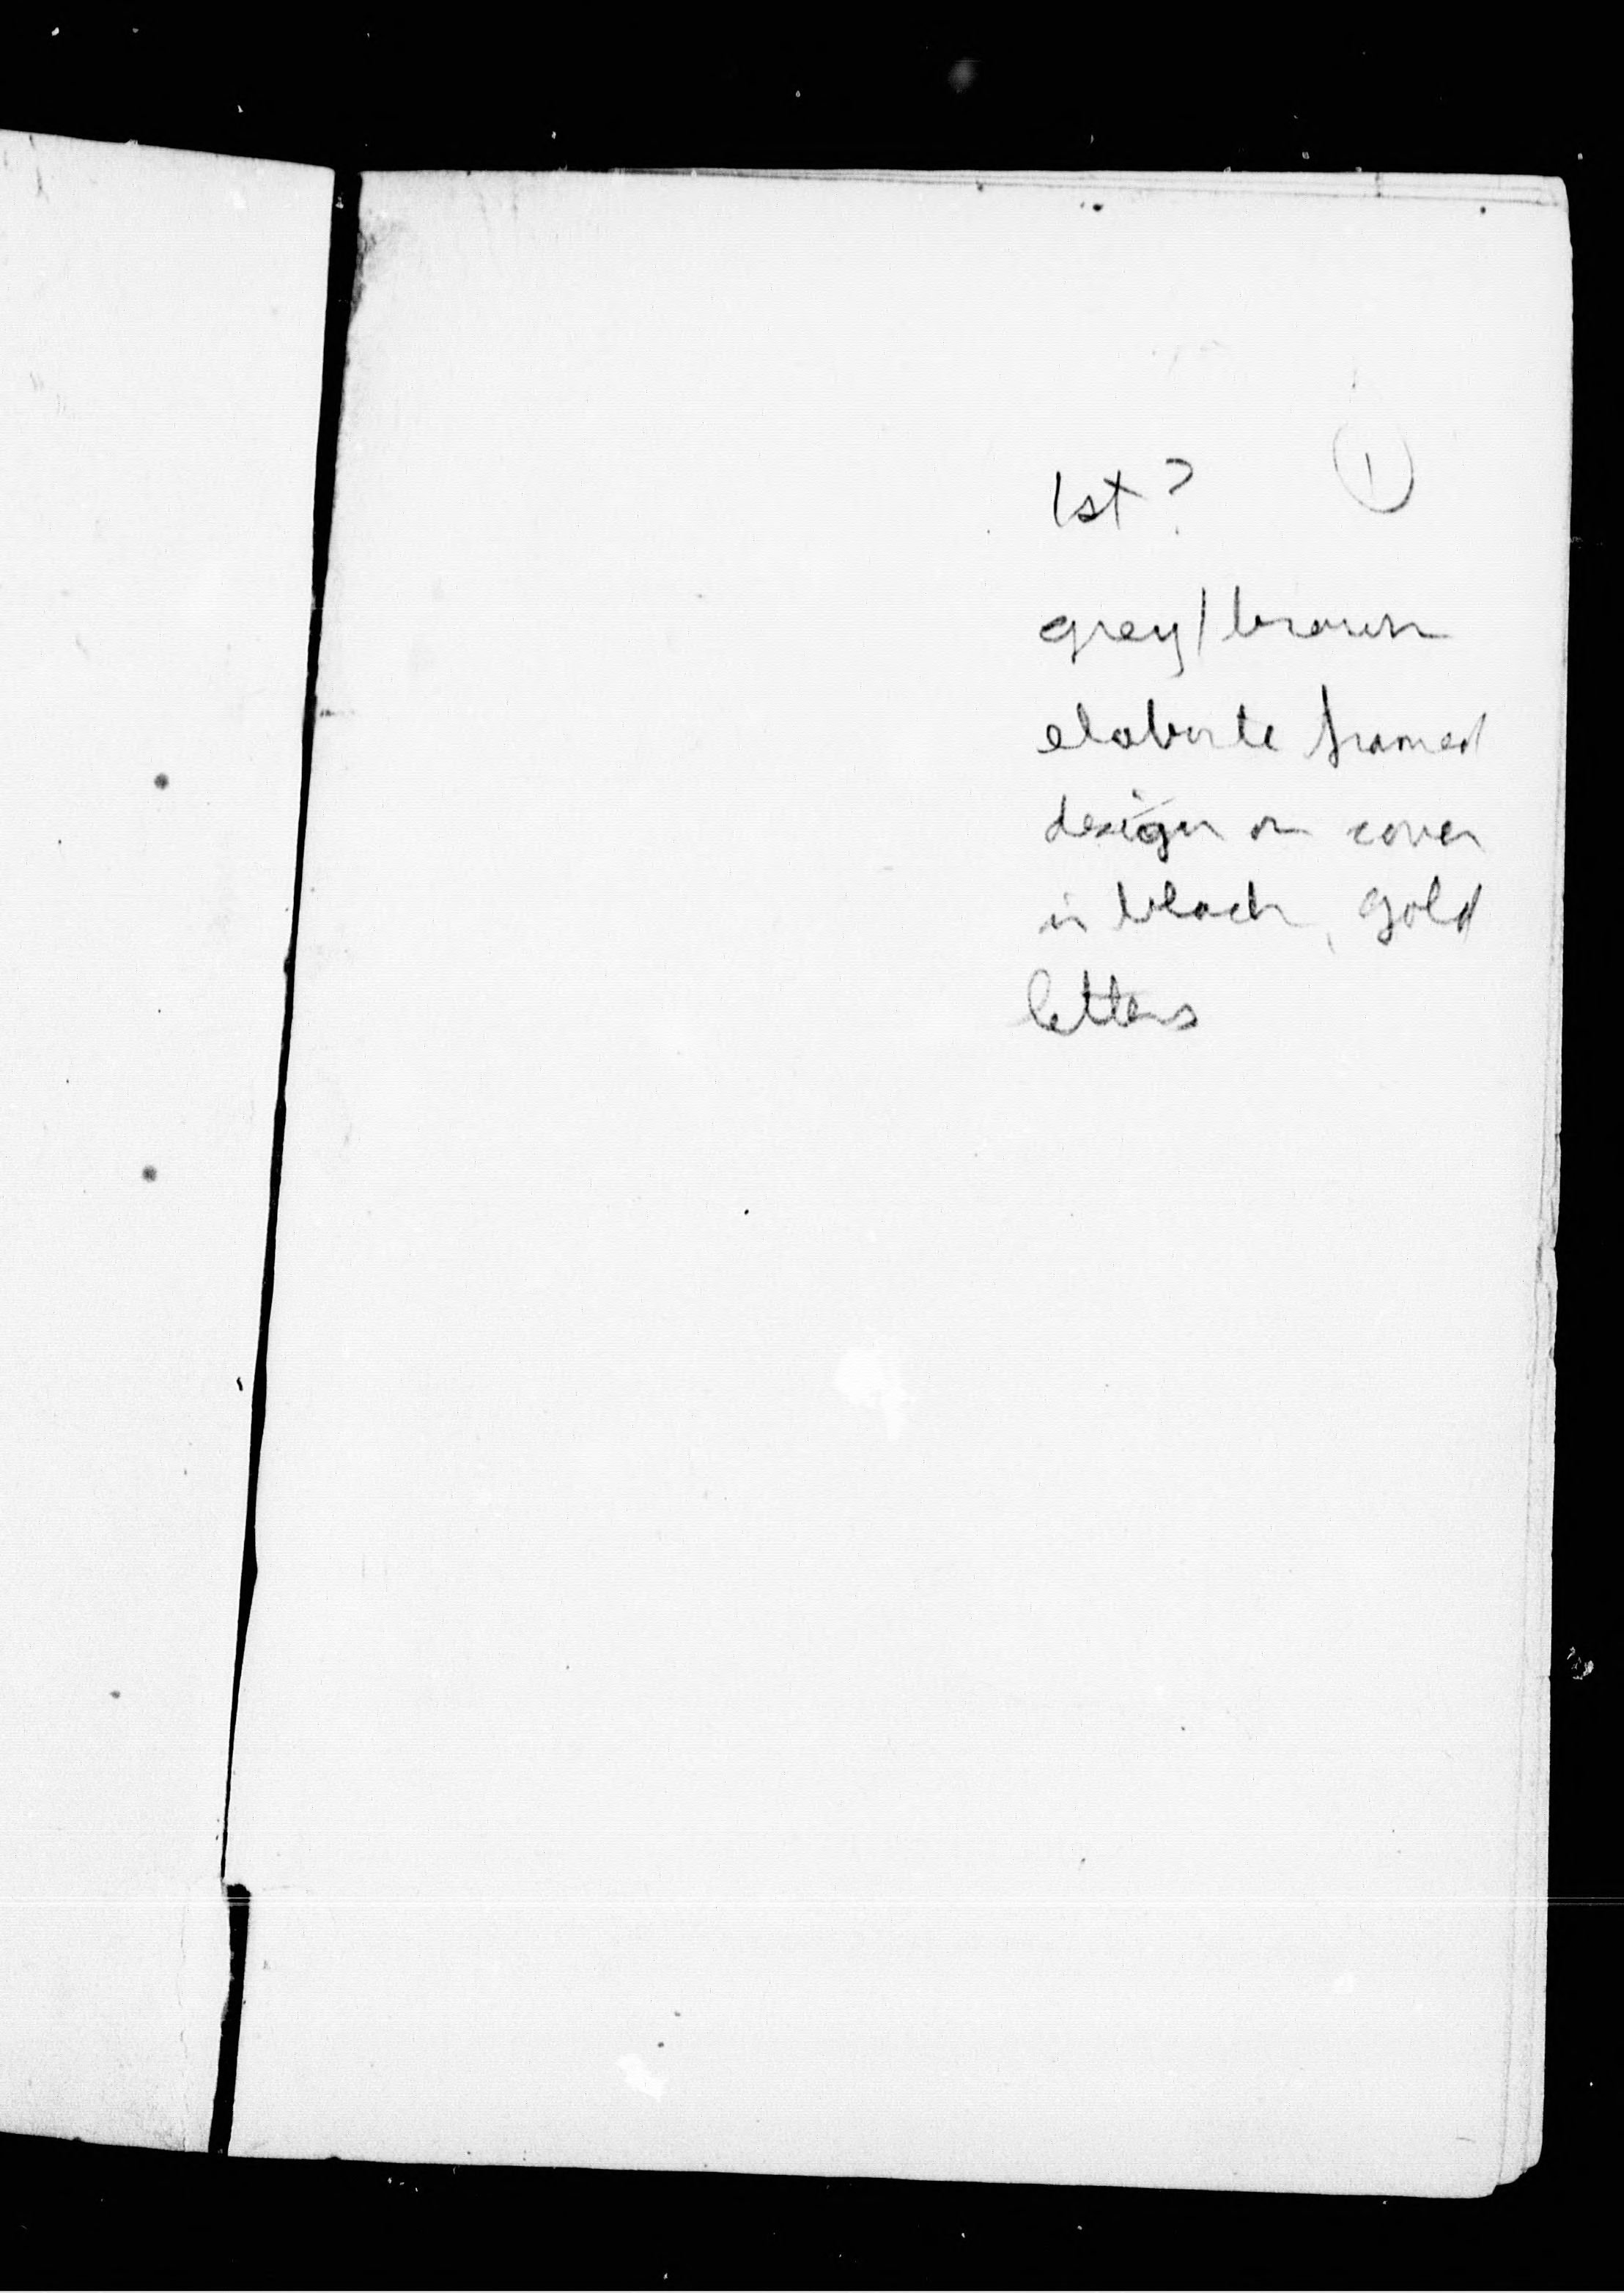 1st? ①
grey/brown
elaborte framed
design on cover
in black, gold
letters